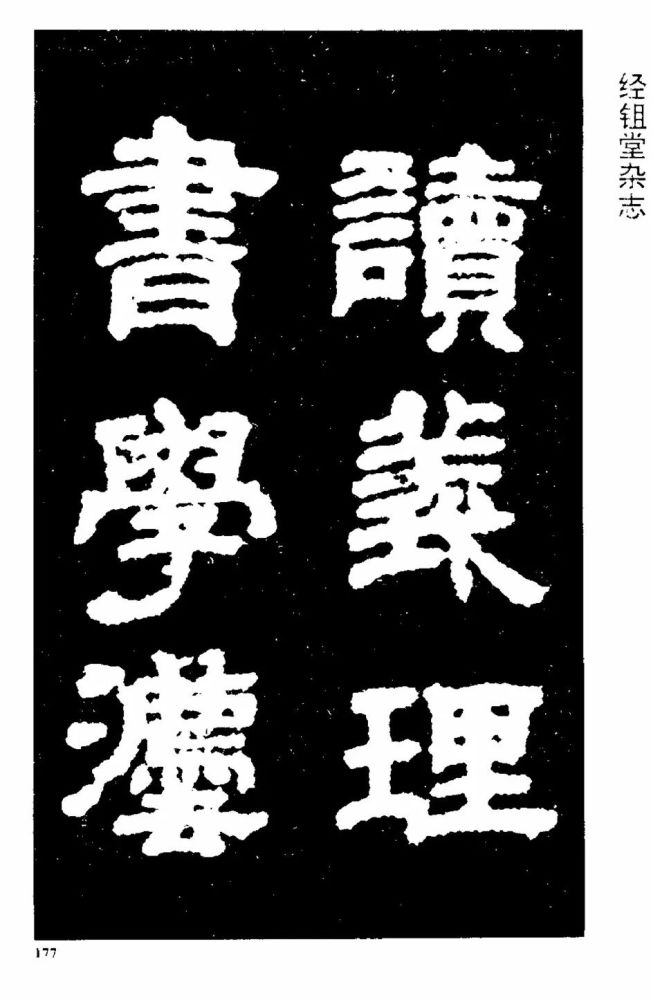 经鉏堂杂志
讀義理
書學灋
177